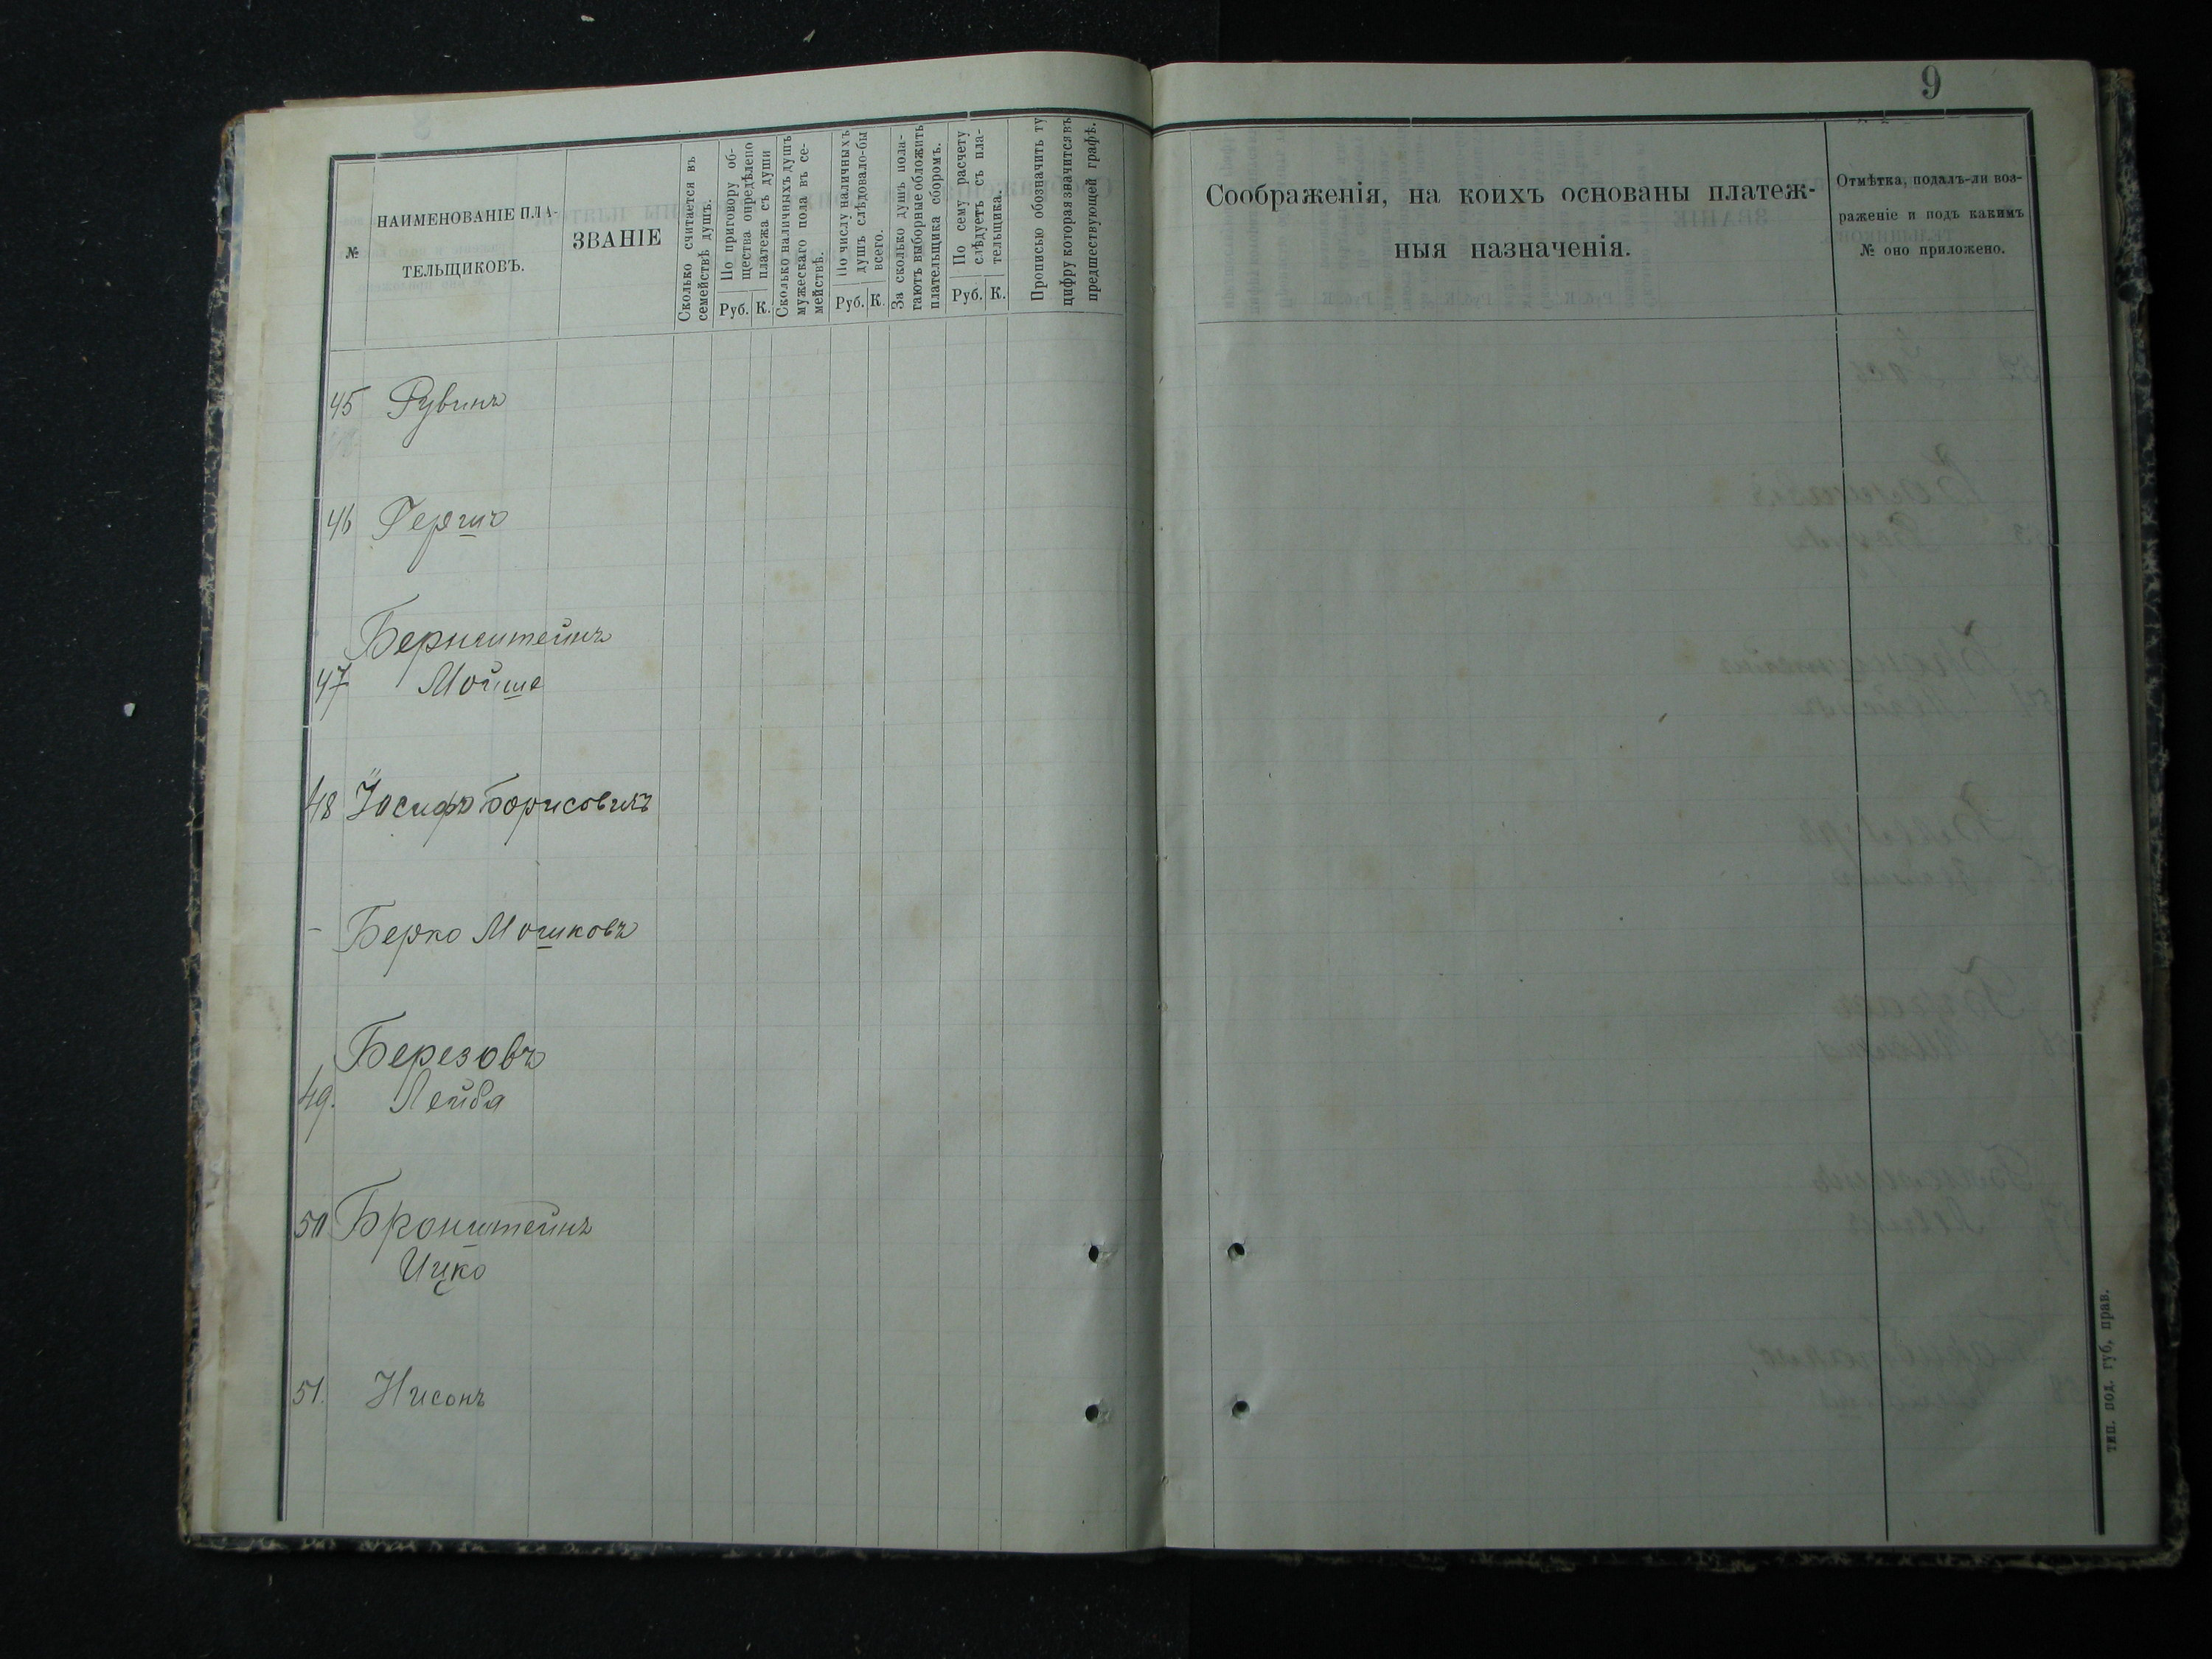 9
№
НАИМЕНОВАНІЕ ПЛА-
ТЕЛЬЩИКОВЪ.
ЗВАНІЕ
Сколько считается въ
семействѣ душъ.
По приговору об-
щества опредѣлено
платежа съ души
Руб. К.
Сколько наличныхъ душъ
мужескаго пола въ се-
мействѣ.
По числу наличныхъ
душъ слѣдовало-бы
всего.
Руб. К.
За сколько душъ пола-
гаютъ выборные обложить
плательщика сборомъ.
По сему расчету
слѣдуетъ съ пла-
тельщика.
Руб. К.
Прописью обозначить ту
цифру которая значится въ
предшествующей графѣ.
Соображенія, на коихъ основаны платеж-
ныя назначенія.
Отмѣтка, подалъ-ли воз-
раженіе и подъ какимъ
№ оно приложено.
45 Рувинъ
46 Гершъ
Бернштейнъ
47 Мойше
48 Іосифъ Борисовичъ
- Берко Мошковъ
Березовъ
49. Лейба
50 Бронштейнъ
Ицко
51. Нисонъ
тип. под. губ. прав.